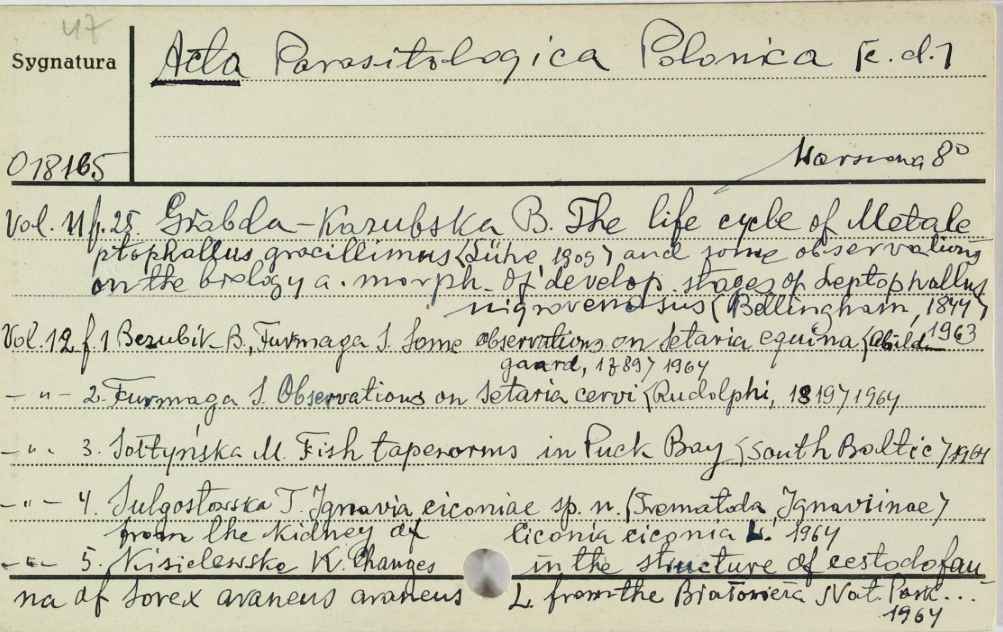 47
Sygnatura
Acta Parasitologica Polonica [c.d.]
Warszawa 8°
018165
Vol. 11 f. 25. Grabda-Kazubska B. The life cycle of Metale
ptophallus gracillimus <Lühe, 1909> and some observations
on the biology a. morph. of develop. stages of Leptophallus
nigrovenosus <Bellingham, 1844>
1963
Vol. 12 f. 1 Bezubik B., Furmaga S. Some observations on Setaria equina <Abild-
gaard, 1789> 1964
-"- 2. Furmaga S. Observations on Setaria cervi <Rudolphi, 1819> 1964
-"- 3. Sołtyńska M. Fish taperorms in Puck Bay <South Baltic> 1964
-"- 4. Sulgostowska T. Ignavia ciconiae sp. n. <Trematoda Ignaviinae>
from the kidney of Ciconia ciconia L. 1964
-"- 5. Kisielewska K. Changes in the structure of cestodofau
na of Sorex araneus araneus L. from the Białowieża Nat. Park...
1964